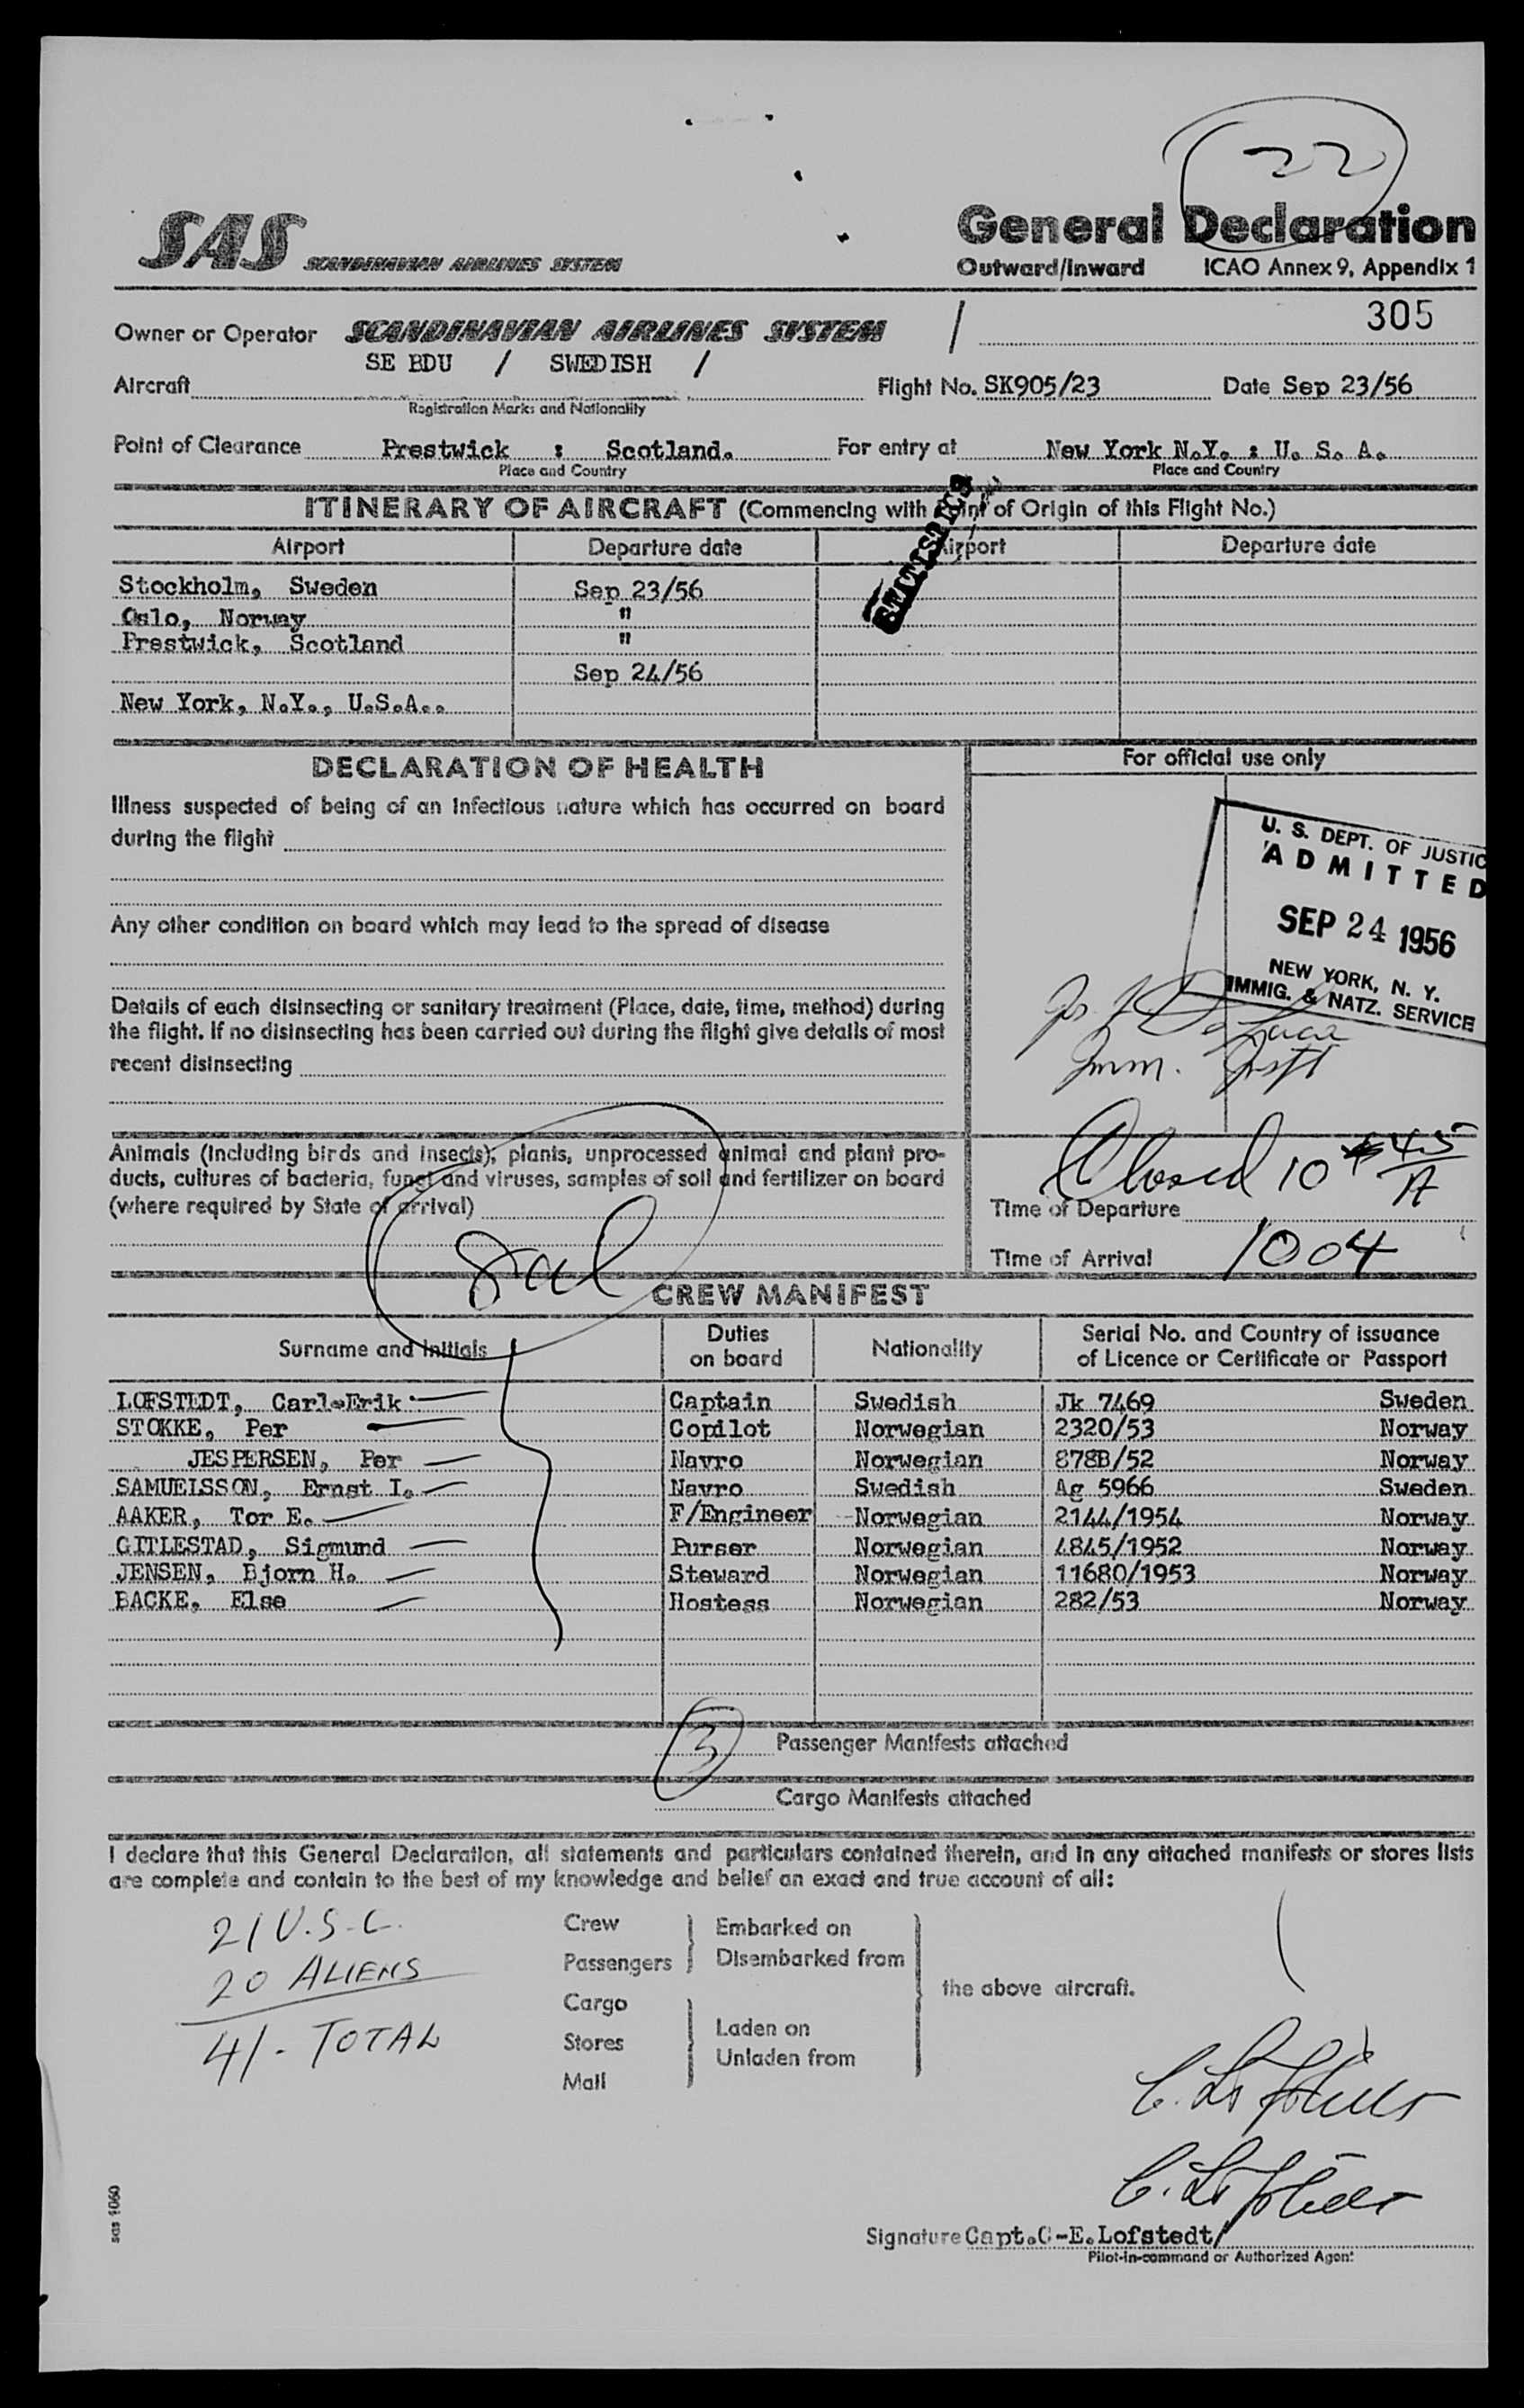 22
SAS SCANDINAVIAN AIRLINES SYSTEM
General Declaration
Outward/Inward ICAO Annex 9, Appendix 1
305
Owner or Operator SCANDINAVIAN AIRLINES SYSTEM /
SE BDU / SWEDISH /
Aircraft Flight No. SK905/23 Date Sep 23/56
Registration Marks and Nationality
Point of Clearance Prestwick : Scotland. For entry at New York N.Y. : U. S. A.
Place and Country Place and Country
STATISTICS
ITINERARY OF AIRCRAFT (Commencing with Point of Origin of this Flight No.)
Airport Departure date Airport Departure date
Stockholm, Sweden Sep 23/56
Oslo, Norway "
Prestwick, Scotland "
Sep 24/56
New York, N.Y., U.S.A..
DECLARATION OF HEALTH
Illness suspected of being of an infectious nature which has occurred on board
during the flight
Any other condition on board which may lead to the spread of disease
Details of each disinsecting or sanitary treatment (Place, date, time, method) during
the flight. If no disinsecting has been carried out during the flight give details of most
recent disinsecting
Animals (including birds and insects), plants, unprocessed animal and plant pro-
ducts, cultures of bacteria, fungi and viruses, samples of soil and fertilizer on board
(where required by State of arrival)
For official use only
U. S. DEPT. OF JUSTIC
ADMITTED
SEP 24 1956
NEW YORK, N. Y.
IMMIG. & NATZ. SERVICE
Imm.
Closed 10 45/A
Time of Departure
Time of Arrival 1004
CREW MANIFEST
Surname and initials Duties on board Nationality Serial No. and Country of issuance of Licence or Certificate or Passport
LOFSTEDT, Carl-Erik Captain Swedish Jk 7469 Sweden
STOKKE, Per Copilot Norwegian 2320/53 Norway
JESPERSEN, Per Navro Norwegian 878B/52 Norway
SAMUELSSON, Ernst I. Navro Swedish Ag 5966 Sweden
AAKER, Tor E. F/Engineer Norwegian 2144/1954 Norway
GITLESTAD, Sigmund Purser Norwegian 4845/1952 Norway
JENSEN, Bjorn H. Steward Norwegian 11680/1953 Norway
BACKE, Else Hostess Norwegian 282/53 Norway
3 Passenger Manifests attached
Cargo Manifests attached
I declare that this General Declaration, all statements and particulars contained therein, and in any attached manifests or stores lists
are complete and contain to the best of my knowledge and belief an exact and true account of all:
21 U.S.C.
20 ALIENS
41 - TOTAL
Crew
Passengers
Embarked on
Disembarked from
Cargo
Stores
Mail
Laden on
Unladen from
the above aircraft.
Signature Capt.C-E.Lofstedt/
Pilot-in-command or Authorized Agent
sas 1060